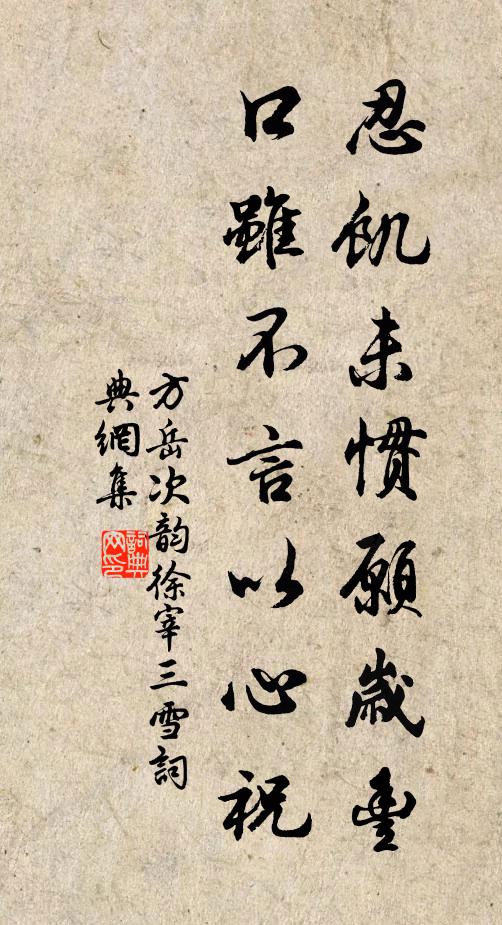 忍飢未慣願歲豐
口雖不言以心祝
方岳次韵徐宰三雪詞
典網集
詞典
网印